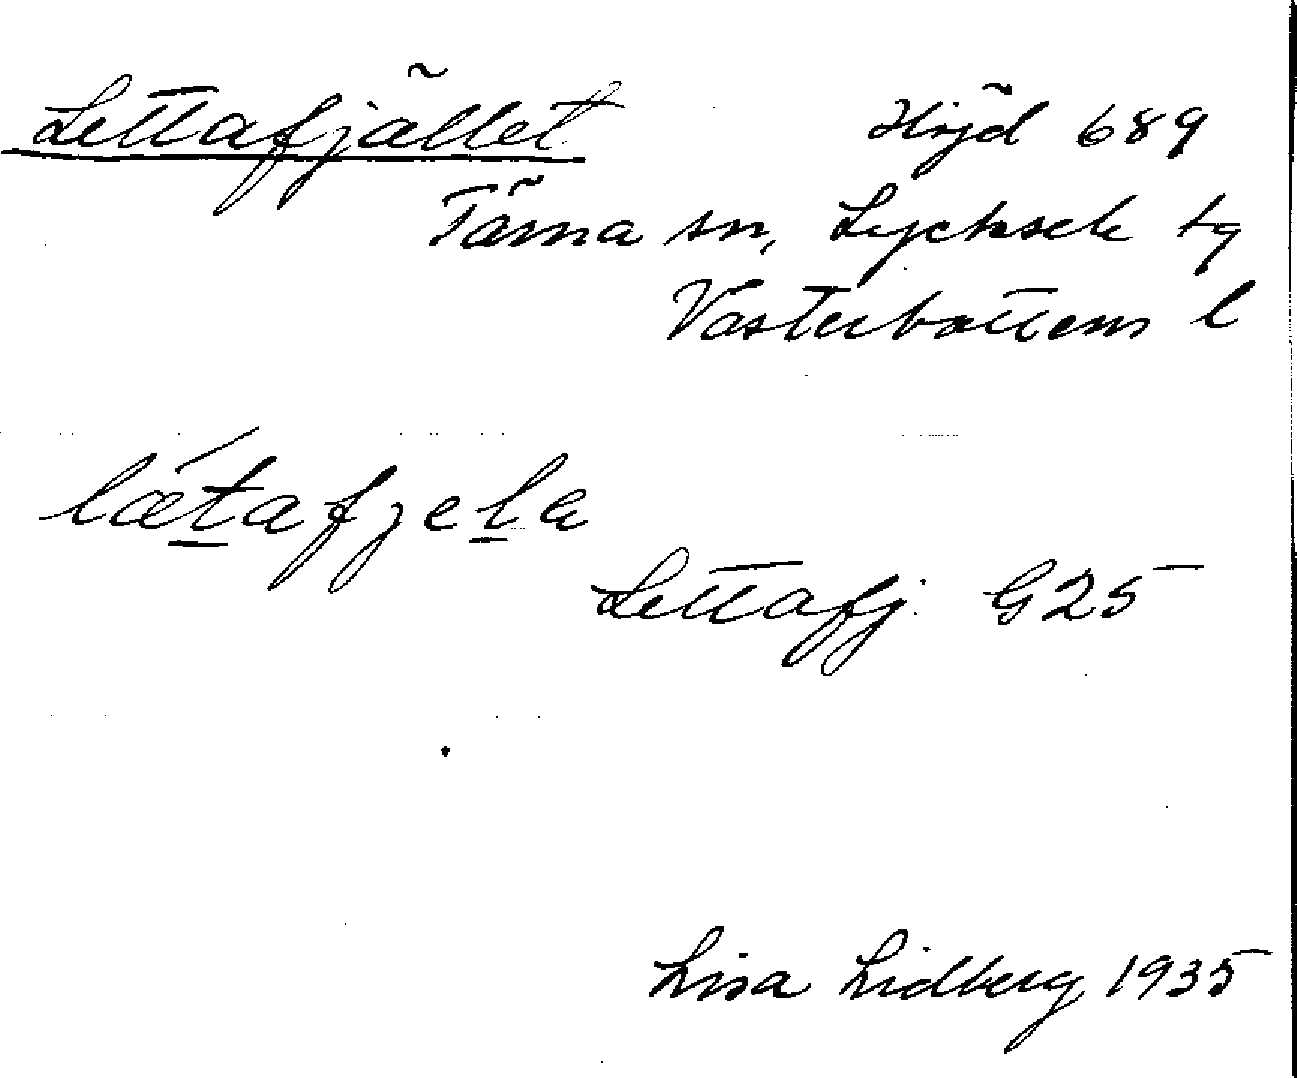 Lettafjället Höjd 689
Tärna sn, Lycksele tg
Västerbottens l
lætafjela
Lettafj. G25
Lisa Lidberg 1935